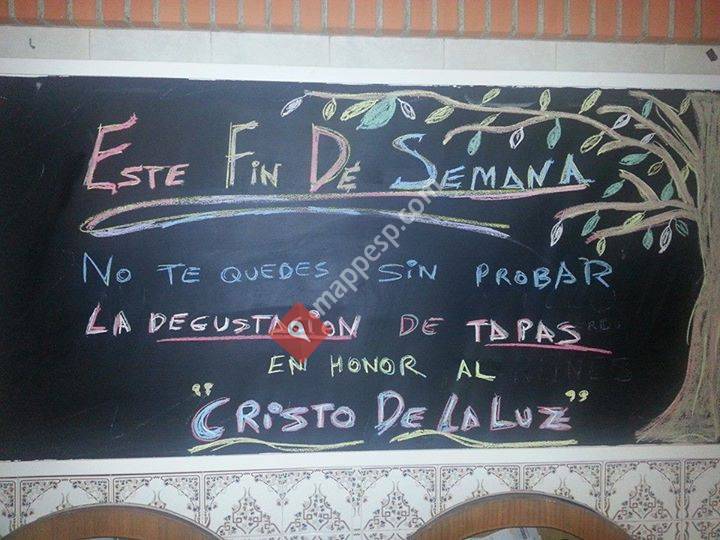 ESTE FIN DE SEMANA
NO TE QUEDES SIN PROBAR
LA DEGUSTACION DE TAPAS
EN HONOR AL
"CRISTO DE LA LUZ"
mappesp.com